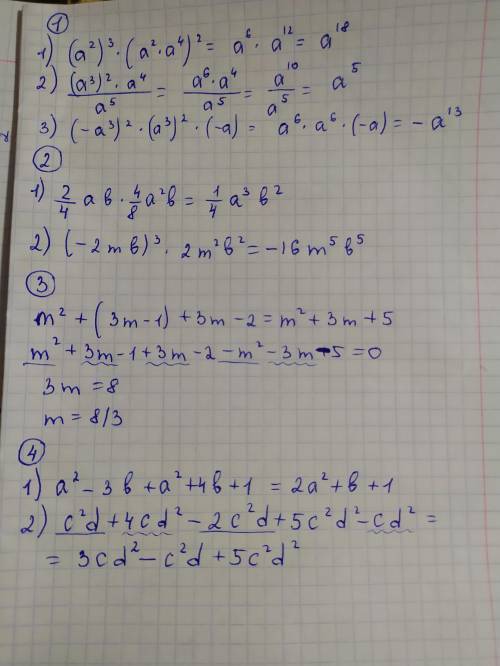 ①
1) (a²)³ · (a² · a⁴)² = a⁶ · a¹² = a¹⁸
2) (a³)² · a⁴ / a⁵ = a⁶ · a⁴ / a⁵ = a¹⁰ / a⁵ = a⁵
3) (-a³)² · (a³)² · (-a) = a⁶ · a⁶ · (-a) = - a¹³
②
1) 2/4 a b · 4/8 a²b = 1/4 a³ b²
2) (-2 m b)³ · 2m²b² = -16 m⁵ b⁵
③
m² + (3m-1) + 3m - 2 = m² + 3m + 5
m² + 3m - 1 + 3m - 2 - m² - 3m - 5 = 0
3m = 8
m = 8/3
④
1) a² - 3b + a² + 4b + 1 = 2a² + b + 1
2) c²d + 4cd² - 2c²d + 5c²d² - cd² =
= 3cd² - c²d + 5c²d²